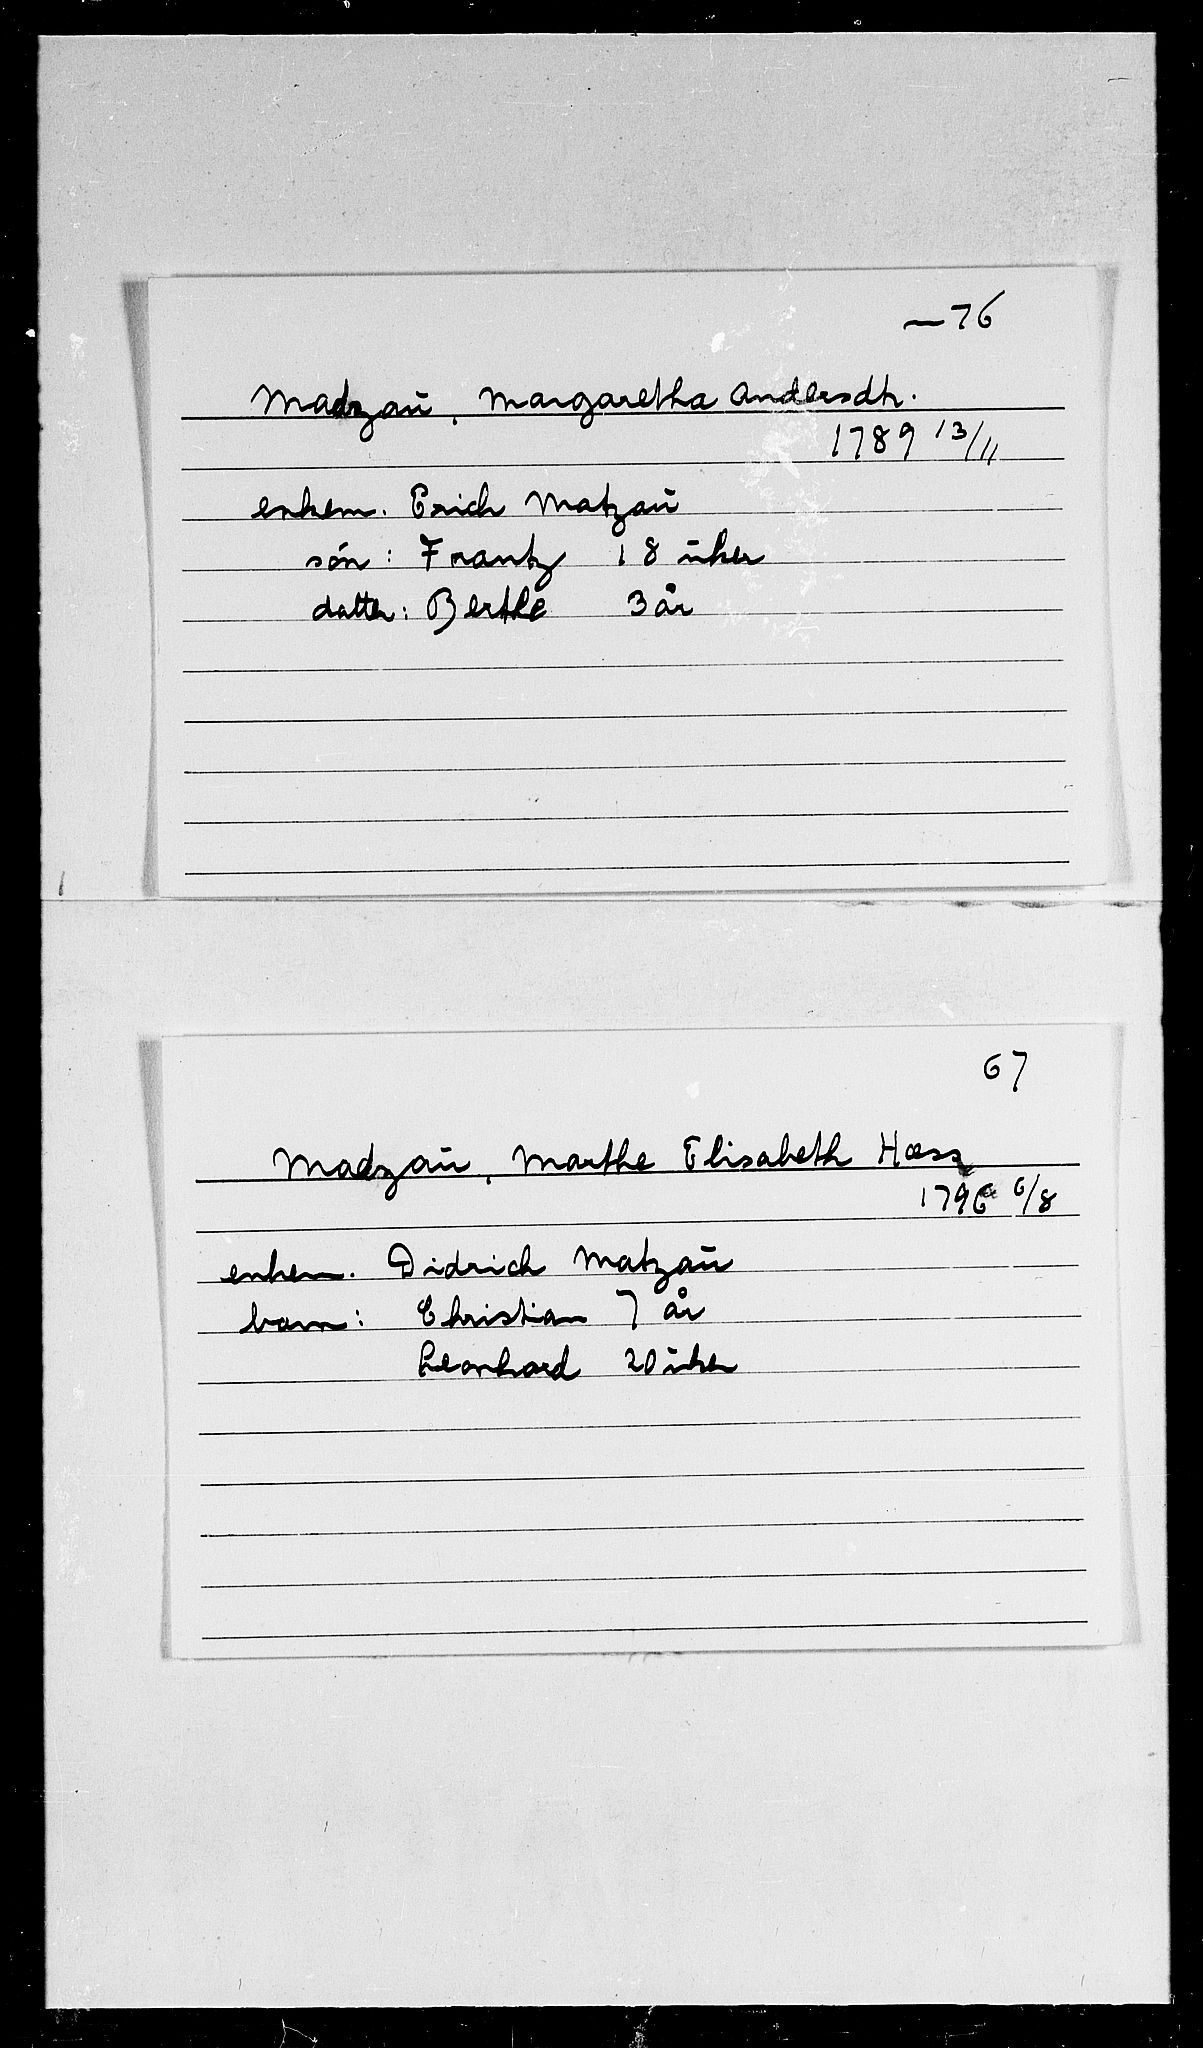 —76
Madzaū, Margaretha Andersdtr.
1789 13/11
enkem. Erich Matzaū
søn: Frantz 18 ūker
datter: Berthe 3 år
67
Madzaū, Marthe Elisabeth Hæss
1796 6/8
enkem. Didrich Matzaū
barn: Christian 7 år
Leonhard 20 ūker